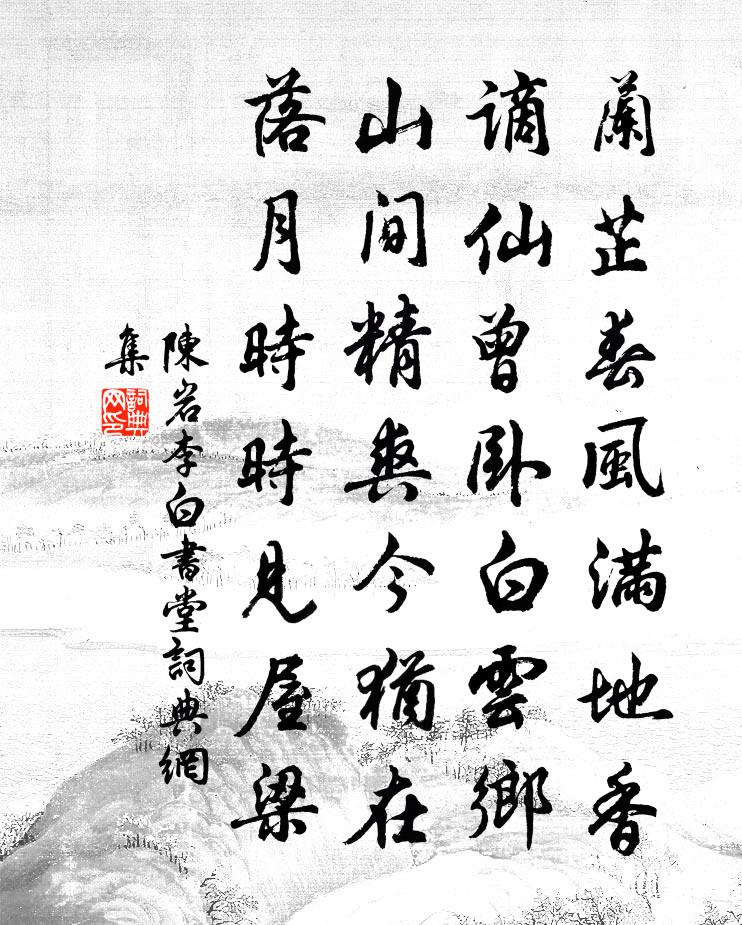 蘭芷春風滿地香
謫仙曾卧白雲鄉
山间精爽今猶在
落月時時見屋梁
陳岩李白書堂詞典網
集
詞典网印